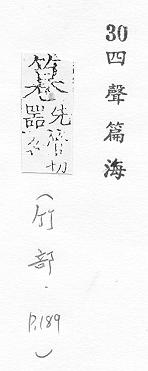 30四聲篇海
先管切
器名
（竹部·
P.189）